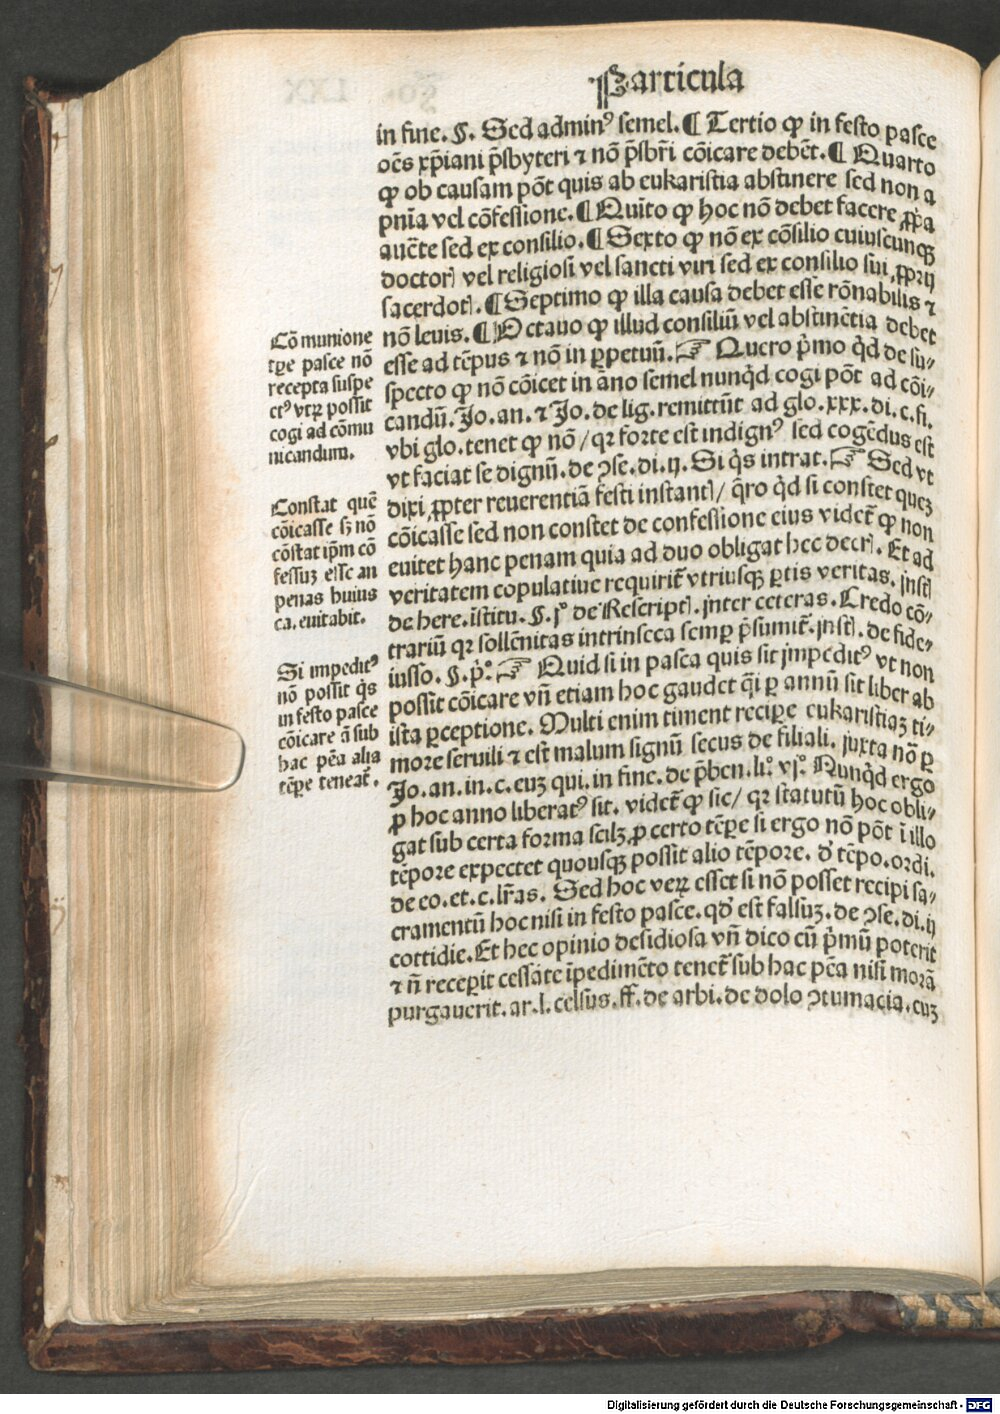 Particula
in fine. §. Sed adminꝰ semel. ¶ Tertio ꝙ in festo pasce
oēs xp̄iani p̄sbyteri ⁊ nō p̄sbr̄i cōicare debēt. ¶ Quarto
ꝙ ob causam pōt quis ab eukaristia abstinere sed non a
pnīa vel cōfessione. ¶ Quīto ꝙ hoc nō debet facere ꝓpͥa
auc̄te sed ex consilio. ¶ Sexto ꝙ nō ex cōsilio cuiuscunqꝫ
doctorꝭ vel religiosi vel sancti viri sed ex consilio sui ꝓprij
sacerdotꝭ. ¶ Septimo ꝙ illa causa debet esse rōnabilis ⁊
nō leuis. ¶ Octauo ꝙ illud consiliū vel abstinētia debet
esse ad tēpus ⁊ nō in ꝑpetuū. ☞ Quero pͥmo qͥd de su⸗
specto ꝙ nō cōicet in āno semel nunqͥd cogi pōt ad cōi⸗
candū. Jo. an. ⁊ Jo. de lig. remittūt ad glo. xxx. di. c. fi.
vbi glo. tenet ꝙ nō / qꝛ forte est indignꝰ sed cogēdus est
vt faciat se dignū. de ꝯse. di. ij. Si qͥs intrat. ☞ Sed vt
dixi ꝓpter reuerentiā festi instantꝭ / q̄ro qͥd si constet queꝫ
cōicasse sed non constet de confessione eius videt̄ ꝙ non
euitet hanc penam quia ad duo obligat hec decrꝭ. Et ad
veritatem copulatiue requirit̄ vtriusqꝫ ꝑtis veritas. jnstꝭ
de here. īstitu. §. jͦ de Rescriptꝭ. jnter ceteras. Credo cō⸗
trariū qꝛ sollēnitas intrinseca semꝑ p̄sumit̄. jnstꝭ. de fide⸗
iusso. §. pͥ. ☞ Quid si in pasca quis sit jmpeditꝰ vt non
possit cōicare vn̄ etiam hoc gaudet qͣi ꝑ annū sit liber ab
ista ꝑceptione. Multi enim timent reciꝑe eukaristiaꝫ ti⸗
more seruili ⁊ est malum signū secus de filiali. juxta nō ꝑ
Jo. an. in. c. euꝫ qui. in fine. de p̄ben. li. vj. Nunqͥd ergo
ꝓ hoc anno liberatꝰ sit. videt̄ ꝙ sic / qꝛ statutū hoc obli⸗
gat sub certa forma scilꝫ ꝓ certo tēꝑe si ergo nō pōt ī illo
tēpore expectet quousqꝫ possit alio tēpore. de tēpo. ordi.
de eo. et. c. lr̄as. Sed hoc veꝝ esset si nō posset recipi sa⸗
cramentū hoc nisi in festo pasce. qd̓ est falsuꝫ. de ꝯse. di. ij
cottidie. Et hec opinio desidiosa vn̄ dico cū pͥmū poterit
⁊ n̄ receꝑit cessāte īpedimēto tenet̄ sub hac pēa nisi morā
purgauerit. ar. l. celsus. ff. de arbi. de dolo ꝯtumacia. cuꝫ
Cōmunione
tꝑe pasce nō
recepta suspe
ctꝰ vtꝝ possit
cogi ad cōmu
nicandum.
Constat quē
cōicasse sꝫ nō
cōstat ip̄m cō
fessuꝫ esse an
penas huius
ca. euitabit.
Si impeditꝰ
nō possit qͥs
in festo pasce
cōicare ā sub
hac pēa alia
tēꝑe teneat̄.
Digitalisierung gefördert durch die Deutsche Forschungsgemeinschaft - DFG